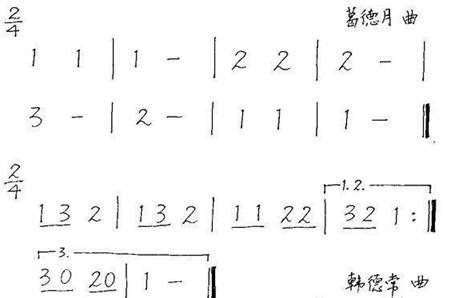 2/4 葛德月 曲
1 1 | 1 - | 2 2 | 2 - |
3 - | 2 - | 1 1 | 1 - ‖
2/4 1.2.
13 2 | 13 2 | 11 22 | 32 1 :‖
3.
30 20 | 1 - ‖ 韩德常 曲